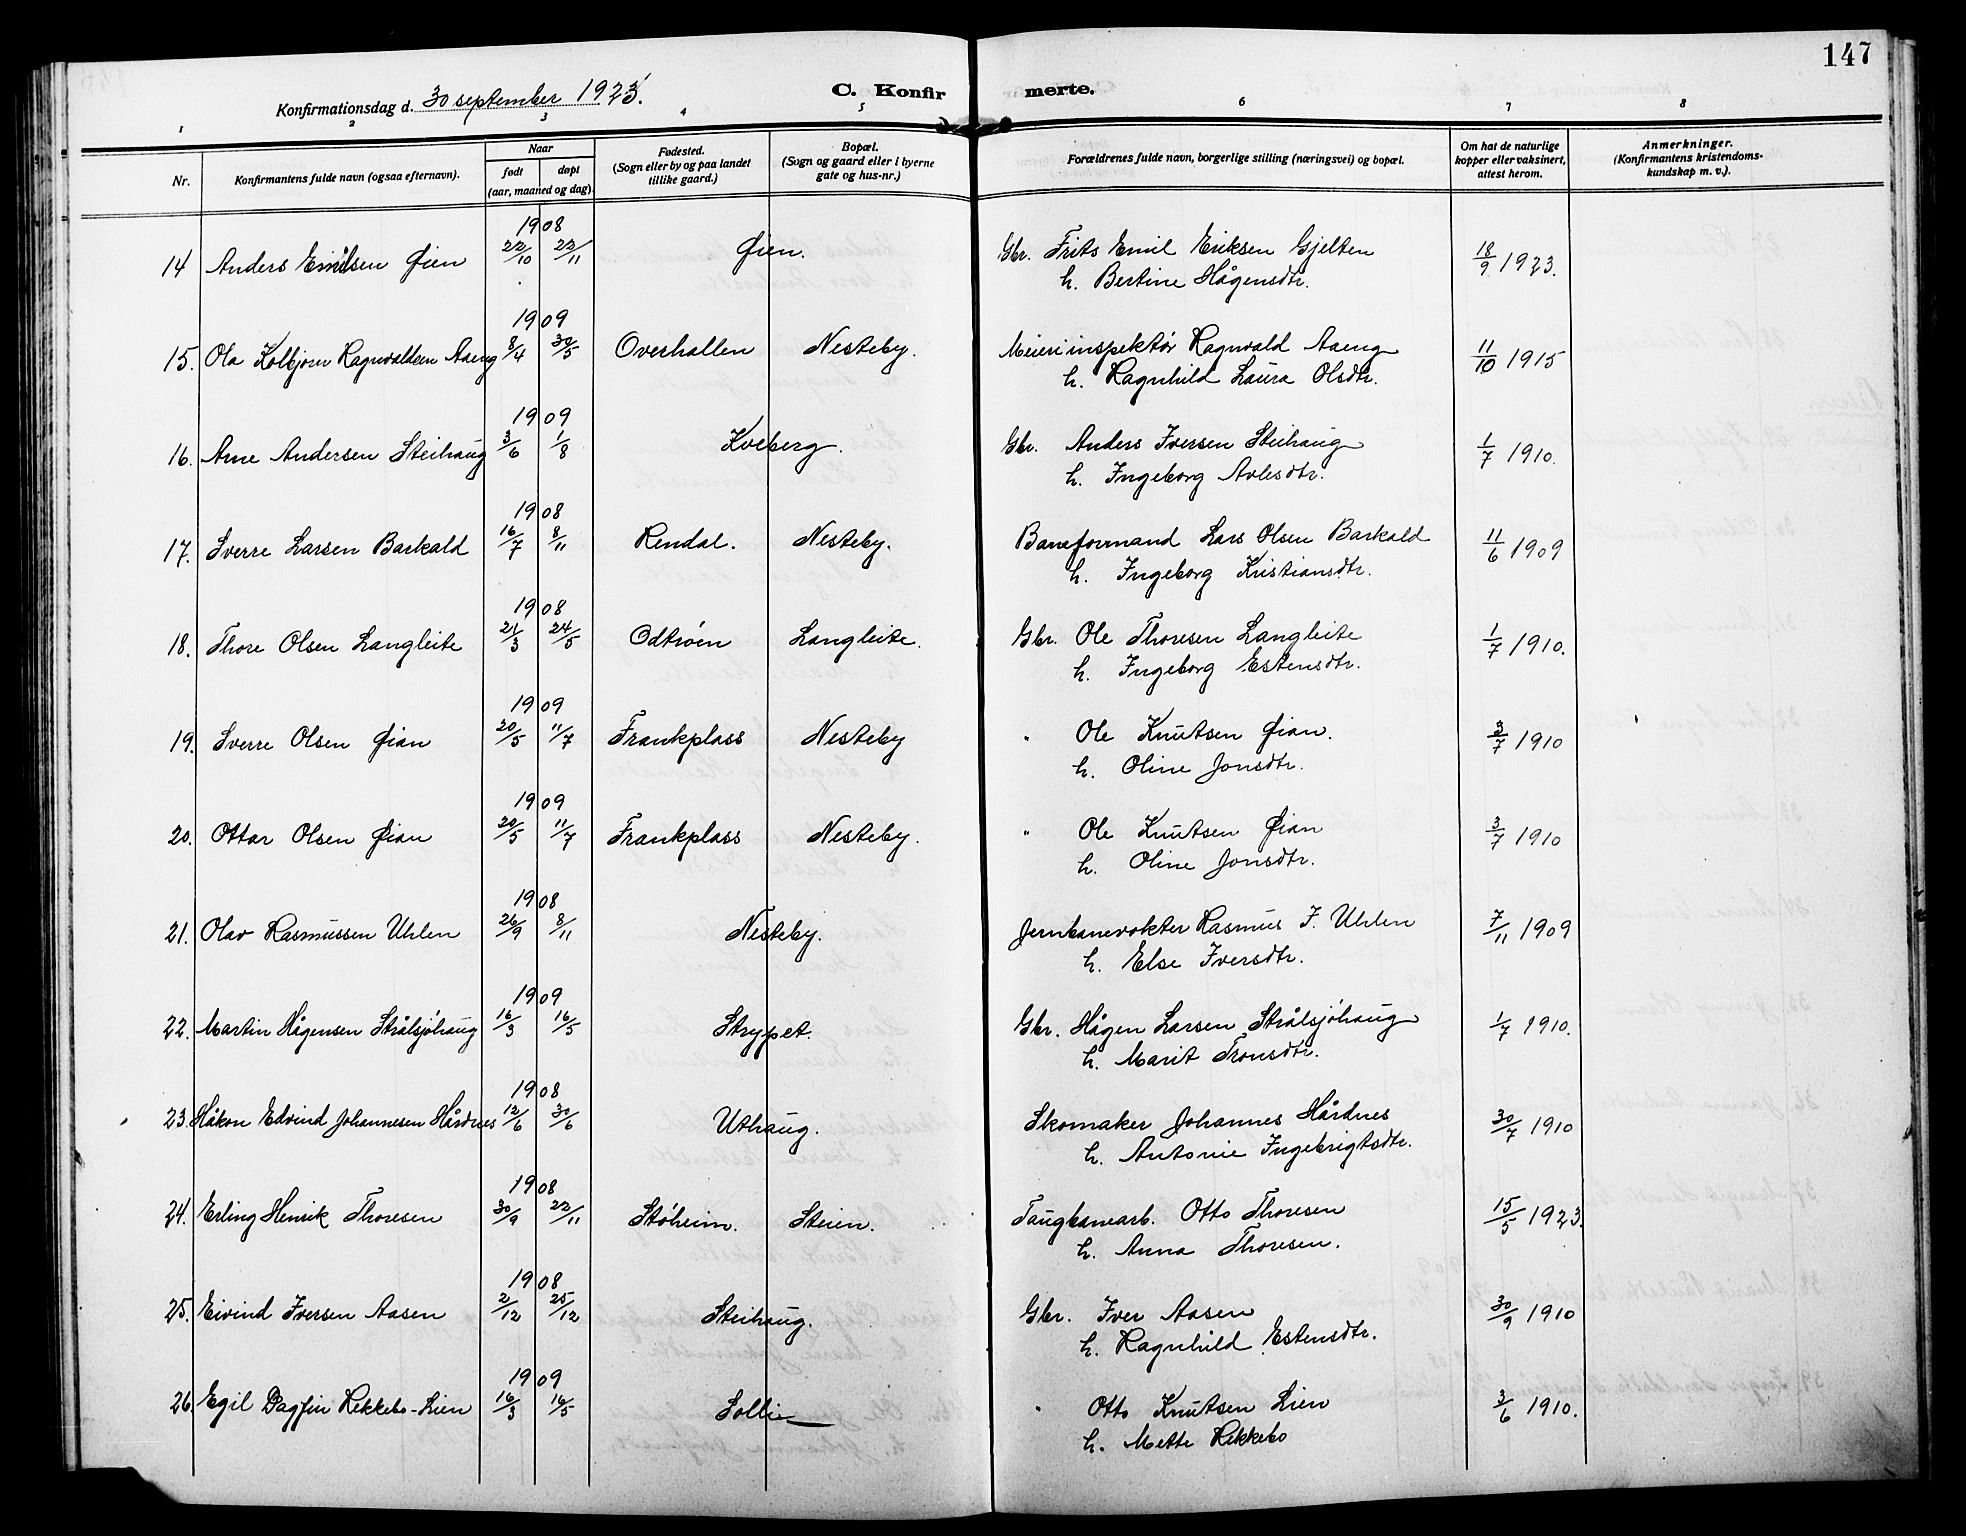 147
Konfirmationsdag d. 30 september 1923. C. Konfirmerte.
1 2 3 4 5 6 7 8
Nr. Konfirmantens fulde navn (ogsaa efternavn). Naar født døpt (aar, maaned og dag) Fødested. (Sogn eller by og paa landet tillike gaard.) Bopæl. (Sogn og gaard eller i byerne gate og hus-nr.) Forældrenes fulde navn, borgerlige stilling (næringsvei) og bopæl. Om hat de naturlige kopper eller vaksinert, attest herom. Anmerkninger. (Konfirmantens kristendoms-kundskap m. v.).
1908
14 Anders Emilsen Øien 22/10 22/11 Øien. Gbr. Frits Emil Eriksen Gjelten 18/9 1923.
h. Bertine Hågensdtr.
1909
15. Ola Kolbjørn Ragnvaldsen Aaeng 8/4 30/5 Overhallen Nesteby. Meieriinspektør Ragnvald Aaeng 11/10 1915
h. Ragnhild Laura Olsdtr.
1909
16. Arne Andersen Steihaug 3/6 1/8 Kveberg. Gbr. Anders Iversen Steihaug 1/7 1910.
h. Ingeborg Avlesdtr.
1908
17. Sverre Larsen Barkald 16/7 8/11 Rendal. Nesteby. Baneformand Lars Olsen Barkald 11/6 1909
h. Ingeborg Kristiansdtr.
1908
18. Thore Olsen Langleite 21/3 24/5 Odtrøen Langleite. Gbr. Ole Thoresen Langleite 1/7 1910.
h. Ingeborg Estensdtr.
1909
19. Sverre Olsen Øian 20/5 11/7 Frankplass Nesteby " Ole Knutsen Øian. 3/7 1910
h. Oline Jonsdtr.
1909
20. Ottar Olsen Øian 20/5 11/7 Frankplass Nesteby. " Ole Knutsen Øian 3/7 1910
h. Oline Jonsdtr.
1908
21. Olav Rasmussen Uhlen 26/9 8/11 Nesteby. Jernbanevokter Rasmus I. Uhlen 7/11 1909
h. Else Iversdtr.
1909
22. Martin Hågensen Strålsjøhaug 16/3 16/5 Strypet. Gbr. Hågen Larsen Strålsjøhaug 1/7 1910.
h. Marit Tronsdtr.
1908
23. Håkon Edvind Johannesen Hårdnes 12/6 30/6 Uthaug. Skomaker Johannes Hårdnes 30/7 1910
h. Antonie Ingebrigtsdtr.
1908
24. Erling Henrik Thoresen 30/9 22/11 Støheim. Steien. Taugbanearb. Otto Thoresen 15/5 1923.
h. Anna Thoresen.
1908
25. Eivind Iversen Aasen 2/12 25/12 Steihaug. Gbr. Iver Aasen 30/9 1910
h. Ragnhild Estensdtr.
1909
26. Egil Dagfin Rekkebo-Lien 16/3 16/5 Sollie " Otto Knutsen Lien 3/6 1910.
h. Mette Rekkebo